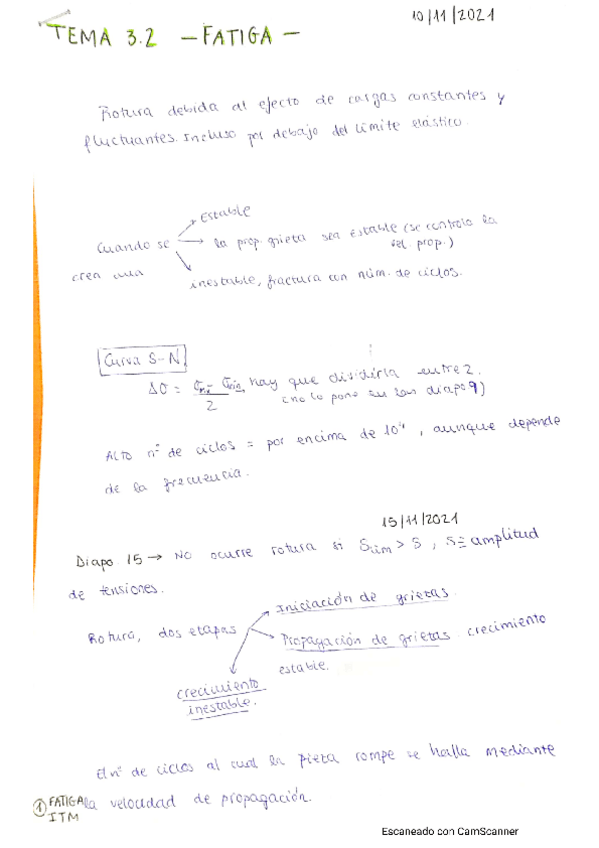 10/11/2021
TEMA 3.2 - FATIGA -
Rotura debida al efecto de cargas constantes y
fluctuantes. Incluso por debajo del límite elástico.
Estable
Cuando se → la prop. grieta sea estable (se controla la
vel. prop.)
crea una
inestable, fractura con núm. de ciclos.
Curva S-N
Δσ = σmx - σmin hay que dividirla entre 2.
2 (no lo pone en las diapo 9)
Alto nº de ciclos = por encima de 10⁴, aunque depende
de la frecuencia.
15/11/2021
Diapo 15 → No ocurre rotura si Slim > S, S ≡ amplitud
de tensiones.
Iniciación de grietas.
Rotura, dos etapas
Propagación de grietas. crecimiento
estable.
crecimiento
inestable.
El nº de ciclos al cual la pieza rompe se halla mediante
la velocidad de propagación.
1 FATIGA
ITM
Escaneado con CamScanner